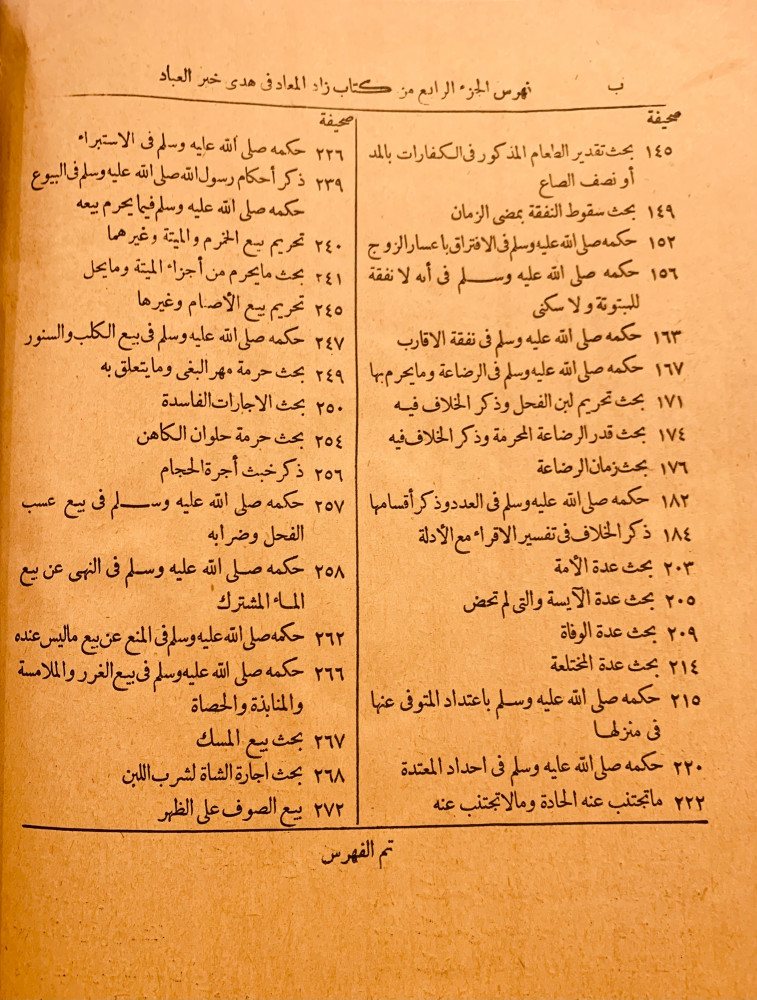 ب
فهرس الجزء الرابع من كتاب زاد المعاد فى هدى خير العباد
صحيفة
١٤٥ بحث تقدير الطعام المذكور فى الكفارات بالمد
أو نصف الصاع
١٤٩ بحث سقوط النفقة بمضى الزمان
١٥٢ حكمه صلى الله عليه وسلم فى الافتراق باعسار الزوج
١٥٦ حكمه صلى الله عليه وسلم فى أنه لا نفقة
للمبتوتة ولا سكنى
١٦٣ حكمه صلى الله عليه وسلم فى نفقة الاقارب
١٦٧ حكمه صلى الله عليه وسلم فى الرضاعة وما يحرم بها
١٧١ بحث تحريم لبن الفحل وذكر الخلاف فيه
١٧٤ بحث قدر الرضاعة المحرمة وذكر الخلاف فيه
١٧٦ بحث زمان الرضاعة
١٨٢ حكمه صلى الله عليه وسلم فى العدد وذكر أقسامها
١٨٤ ذكر الخلاف فى تفسير الاقراء مع الأدلة
٢٠٣ بحث عدة الأمة
٢٠٥ بحث عدة الآيسة والتى لم تحض
٢٠٩ بحث عدة الوفاة
٢١٤ بحث عدة المختلعة
٢١٥ حكمه صلى الله عليه وسلم باعتداد المتوفى عنها
فى منزلها
٢٢٠ حكمه صلى الله عليه وسلم فى احداد المعتدة
٢٢٢ ما تجتنب عنه الحادة ومالاتجتنب عنه
صحيفة
٢٢٦ حكمه صلى الله عليه وسلم فى الاستبراء
٢٣٩ ذكر أحكام رسول الله صلى الله عليه وسلم فى البيوع
حكمه صلى الله عليه وسلم فيما يحرم بيعه
٢٤٠ تحريم بيع الخرم والميتة وغيرهما
٢٤١ بحث ما يحرم من أجزاء الميتة وما يحل
٢٤٥ تحريم بيع الأصنام وغيرها
٢٤٧ حكمه صلى الله عليه وسلم فى بيع الكلب والسنور
٢٤٩ بحث حرمة مهر البغى وما يتعلق به
٢٥٠ بحث الاجارات الفاسدة
٢٥٤ بحث حرمة حلوان الكاهن
٢٥٦ ذكر خبث أجرة الحجام
٢٥٧ حكمه صلى الله عليه وسلم فى بيع عسب
الفحل وضرابه
٢٥٨ حكمه صلى الله عليه وسلم فى النهى عن بيع
الماء المشترك
٢٦٢ حكمه صلى الله عليه وسلم فى المنع عن بيع ماليس عنده
٢٦٦ حكمه صلى الله عليه وسلم فى بيع الغرر والملامسة
والمنابذة والحصاة
٢٦٧ بحث بيع المسك
٢٦٨ بحث اجارة الشاة لشرب اللبن
٢٧٢ بيع الصوف على الظهر
تم الفهرس